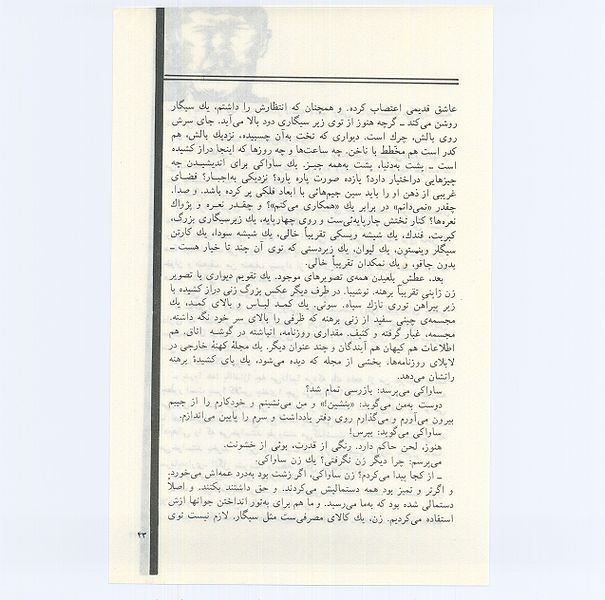 عاشق قدیمی اعتصاب کرده. و همچنان که انتظارش را داشتم، یك سیگار
روشن می‌کند ـ گرچه هنوز از توی زیر سیگاری دود بالا می‌آید. جای سرش
روی بالش، چرك است. دیواری که تخت به‌آن چسبیده، نزدیك بالش، هم
کدر است هم مخطط با ناخن. چه ساعت‌ها و چه روزها که اینجا دراز کشیده
است ـ پشت به‌دنیا، پشت به‌همه چیـز. یك ساواکی برای اندیشیـدن چه
چیزهایی دراختیار دارد؟ یازده صورت پاره پاره؟ نزدیکی به‌اجبـار؟ فضـای
غریبی از ذهن او را باید سین جیم‌هائی با ابعاد فلکی پر کرده باشد. و صدا.
چقدر «نمی‌دانم» در برابر یك «همکاری می‌کنم»؟ و چقـدر نعره و پژواك
نعره‌ها؟ کنار تختش چارپایه‌ئی‌ست و روی چهارپایه، یك زیرسیگاری بزرگ،
کبریت، فندك، یك شیشه ویسکی تقریباً خالی، یك شیشه سودا، یك کارتن
سیگار وینستون، یك لیوان، یك زیردستی که توی آن چند تا خیار هست ـ
بدون چاقو، و یك نمکدان تقریباً خالی.
بعد، عطش بلعیدن همه‌ی تصویرهای موجود. یك تقویم دیواری با تصویر
زن ژاپنی تقریباً برهنه. توشیبا. در طرف دیگر عکس بزرگ زنی دراز کشیده با
زیر پیراهن توری نازك سیاه. سونی. یك کمـد لبـاس و بالای کمـد، یك
مجسمه‌ی چینی سفید از زنی برهنه که ظرفی را بالای سر خود نگه داشته.
مجسمه، غبار گرفته و کثیف. مقداری روزنامه، انباشته در گوشـه اتاق. هم
اطلاعات هم کیهان هم آیندگان و چند عنوان دیگر. یك مجلهٔ کهنهٔ خارجی در
لابلای روزنامه‌ها. بخشی از مجله که دیده می‌شود، یك پای کشیدهٔ برهنه
رانشان می‌دهد.
ساواکی می‌پرسد: بازرسی تمام شد؟
دوست به‌من می‌گوید: «بنشین!» و من می‌نشینم و خودکارم را از جیبم
بیرون می‌آورم و می‌گذارم روی دفتر یادداشت و سرم را پایین می‌اندازم.
ساواکی می‌گوید: بپرس!
هنوز، لحن حاکم دارد. رنگی از قدرت، بوئی از خشونت.
می‌پرسم: چرا دیگر زن نگرفتی؟ یك زن ساواکی.
ـ از کجا پیدا می‌کردم؟ زن ساواکی، اگر زشت بود به‌درد عمه‌اش می‌خورد.
و اگرتر و تمیز بود همه دستمالیش می‌کردند. و حق داشتند بکنند. و اصلا
دستمالی شده بود که به‌ما می‌رسید. و ما هم برای به‌تور انداختن جوانها ازش
استفاده می‌کردیم. زن، یك کالای مصرفی‌ست مثل سیگار. لازم نیست توی
۴۳